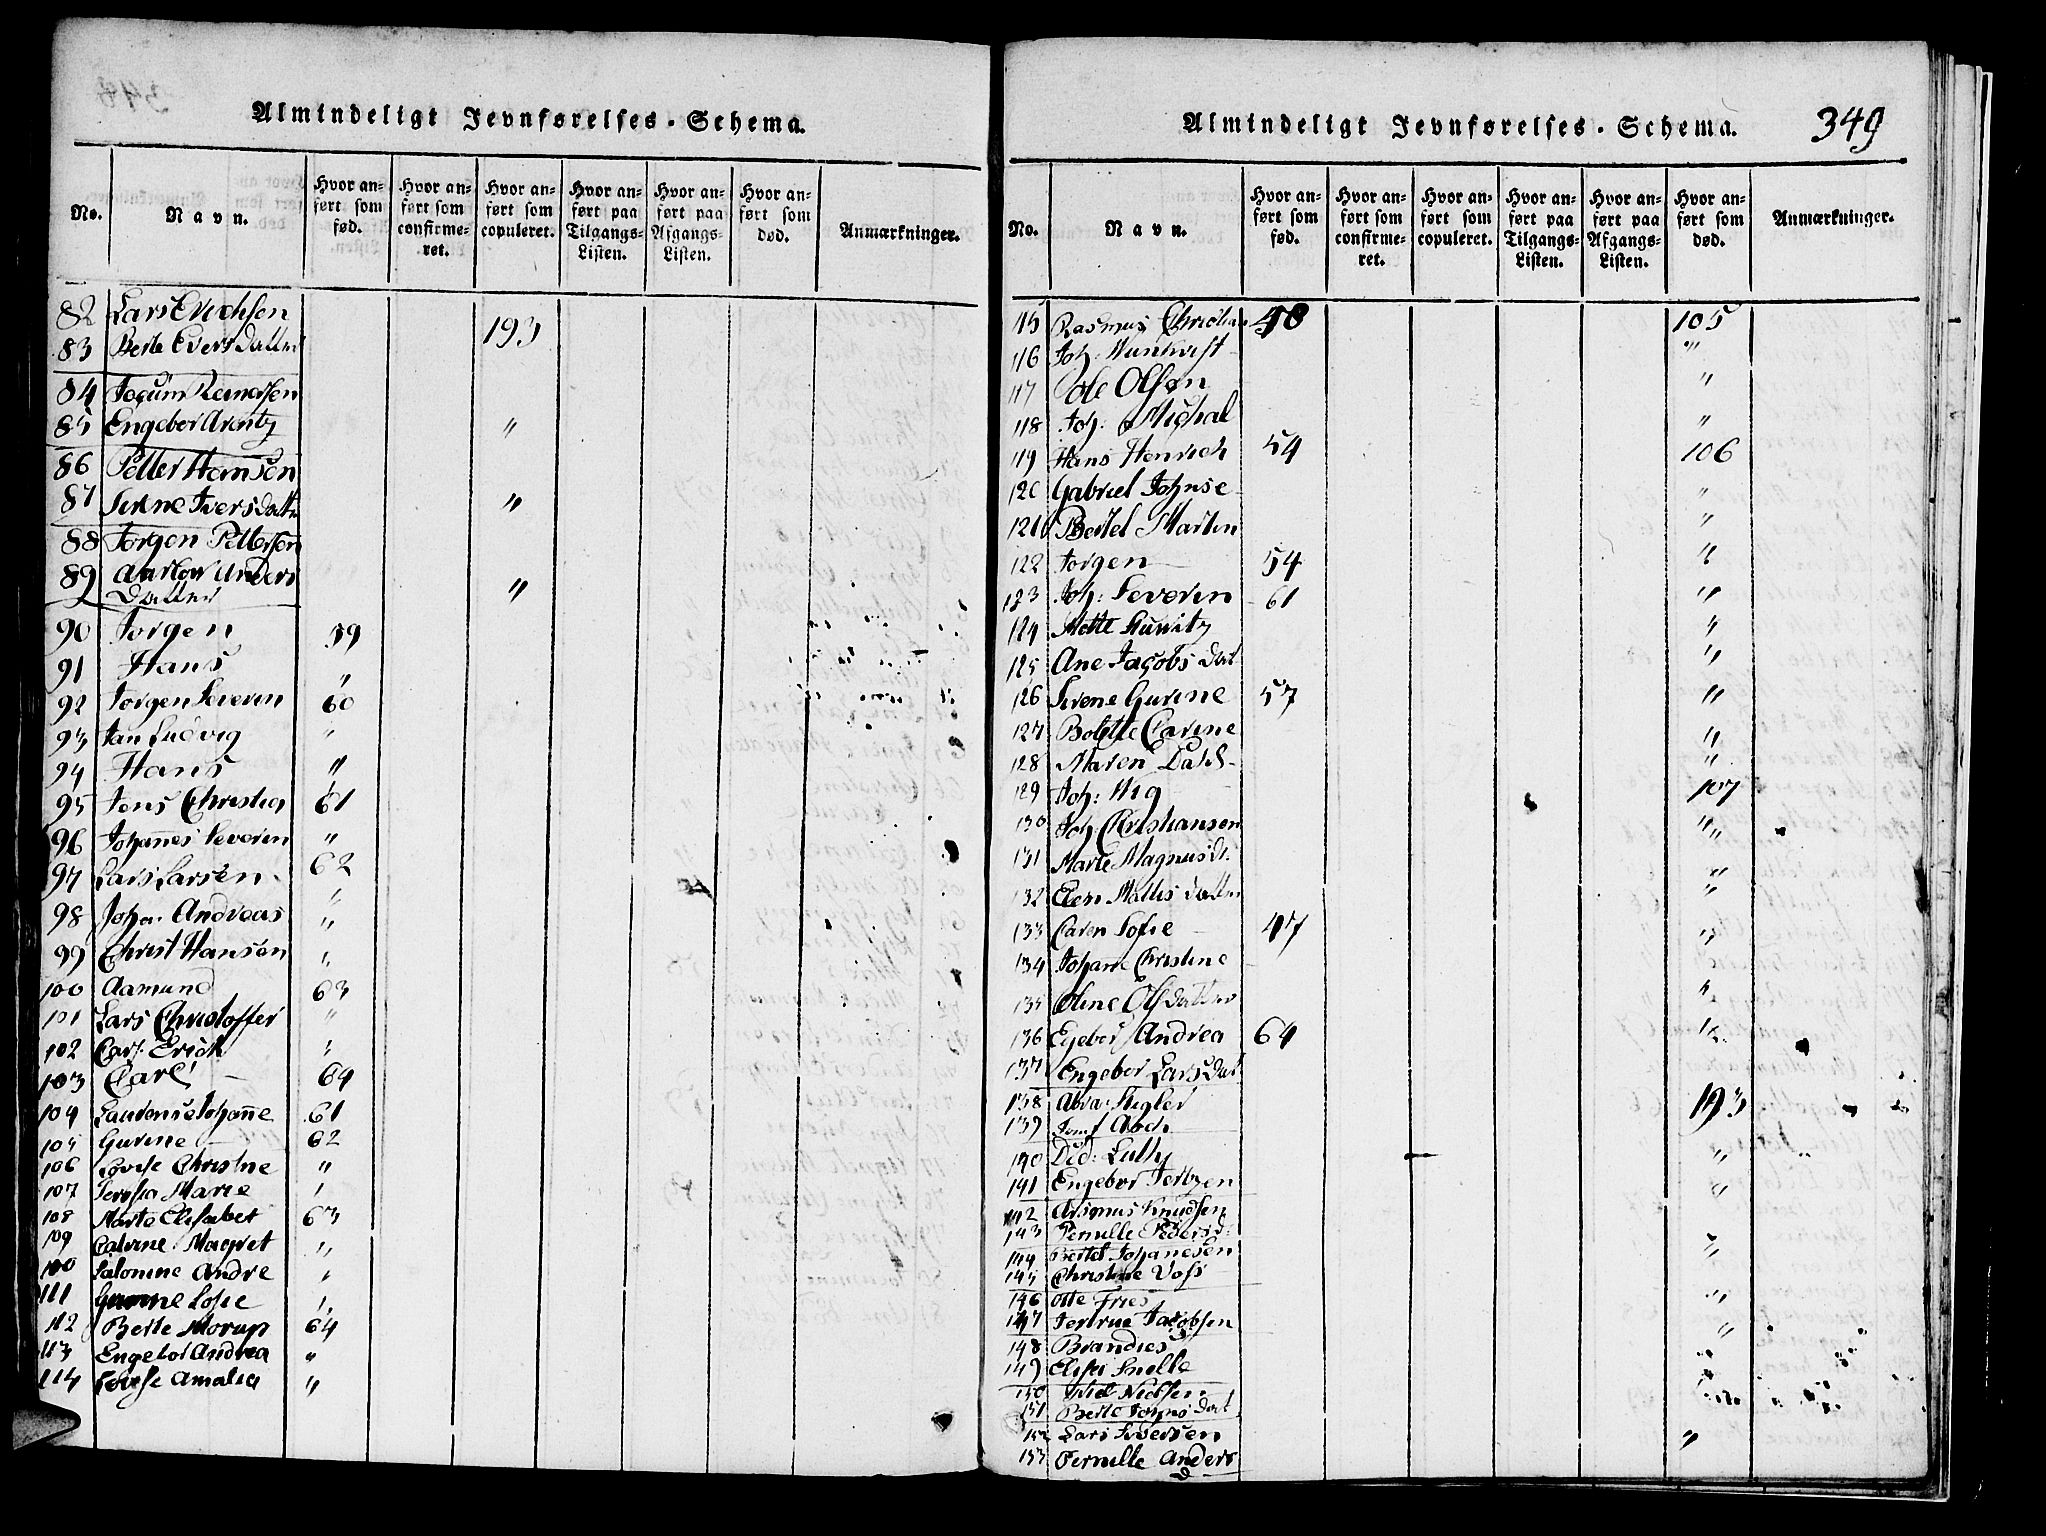 Almindeligt Jevnførelses-Schema.
No. Navn. Hvor anført som fød. Hvor anført som confirmeret. Hvor anført som copuleret. Hvor anført paa Tilgangs-Listen. Hvor anført paa Afgangs-Listen. Hvor anført som død. Anmærkninger.
82 Lars
83 Berte Evers Datter 193
84 Jocum
85 Engebor Arentz "
86 Petter Hansen
87 Serene Iversdatter "
88 Jorgen Pettersen
89 Anders
Datter "
90 Jorgen 59
91 Hans "
92 Jorgen Severin 60
93 Jan Ludvig "
94 Hans "
95 Jens Christia 61
96 Johannes Severin "
97 Lars Larsen 62
98 Johan Andreas "
99 Christ Hansen "
100 Aamund 63
101 Lars Christoffer "
102 Carl Erich "
103 Carl 64
104 Laurense Johanne 61
105 Gurine 62
106 Lovise Christine "
107 Marie "
108 Marte Elisabet 63
109 Catrine Magret "
100 Salomine Andre "
111 Gurine Sofie "
112 Berte Morup 64
113 Engebor Andrea "
114 Lovise Amalia "
Almindeligt Jevnførelses-Schema. 349
No. Navn. Hvor anført som fød. Hvor anført som confirmeret. Hvor anført som copuleret. Hvor anført paa Tilgangs-Listen. Hvor anført paa Afgangs-Listen. Hvor anført som død. Anmærkninger.
115 Rasmus Christian 105
116 Joh: "
117 Ole Olsøn "
118 Joh: Michal "
119 Hans Henrich 54 106
120 Gabriel Johnse "
121 Bertel Martin "
122 Jorgen 54 "
123 Joh: Severin 61 "
124 Mette "
125 Ane Jacobs Dat "
126 Serene Gurine 57 "
127 Bolette Carine "
128 Maren Dahl "
129 Joh: Wig 107
130 Joh Christiansen "
131 Marte Magnus Dr. "
132 Elen Mattis Datter "
133 Caren Sofie 47 "
134 Johane Christine "
135 Oline Olsdatter "
136 Egebor Andrea 64 "
137 Engebor Lars Dat
138 Abra: Stegler 193
139
140 Did: Lully "
141 Engebor "
142 Knudsen
143 Pernille Peders d:
144 Bertel Johanesen "
145 Christine Voss
146 Otte Fries "
147 Jacobsen "
148 Brandies
149 Snelle
150 Nielsen
151 Berte Johns Dat
152 Lars Iversen "
153 Pernille Anders
D